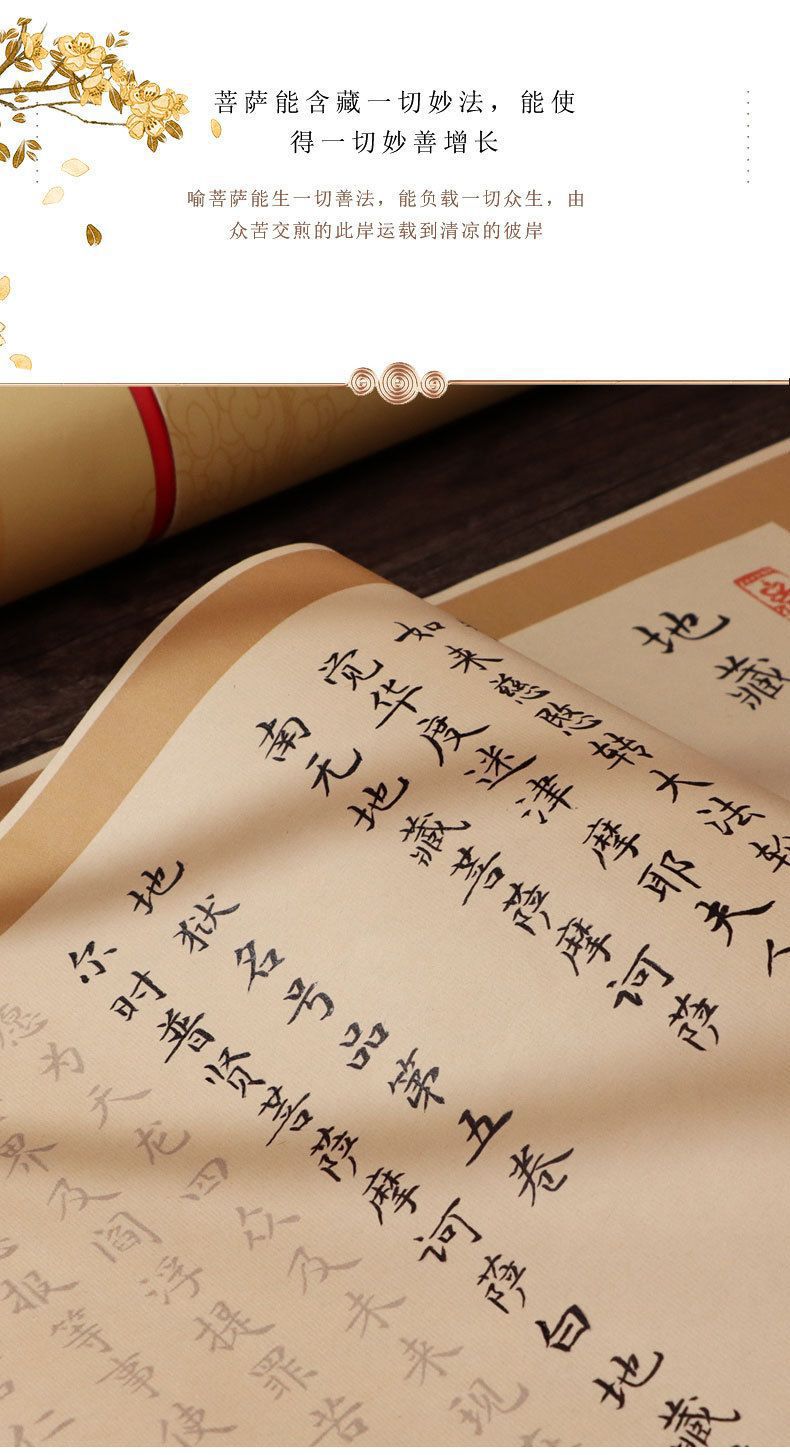 菩萨能含藏一切妙法，能使
得一切妙善增长
喻菩萨能生一切善法，能负载一切众生，由
众苦交煎的此岸运载到清凉的彼岸
地藏
如来慈愍转大法轮
觉华度迷津摩耶夫人
南无地藏菩萨摩诃萨
地狱名号品第五卷
尔时普贤菩萨摩诃萨白地藏
愿为天龙四众及未来现
界及阎浮提罪苦
报等事使
仁